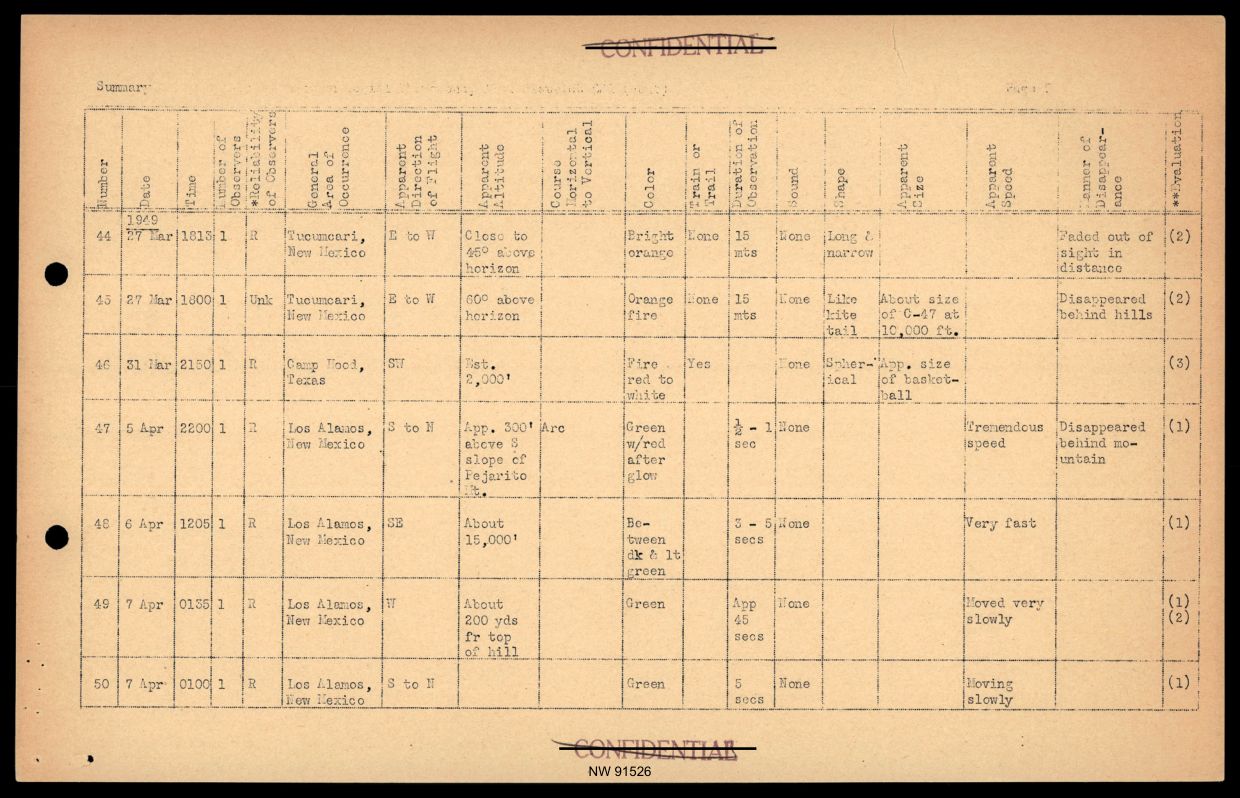 CONFIDENTIAL
Summary
Number
Date
Time
Number of Observers
*Reliability of Observers
General Area of Occurrence
Apparent Direction of Flight
Apparent Altitude
Course Horizontal to Vertical
Color
Train or Trail
Duration of Observation
Sound
Shape
Apparent Size
Apparent Speed
Manner of Disappear-ance
**Evaluation
1949
44 27 Mar 1813 1 R Tucumcari, E to W Close to Bright None 15 None Long & Faded out of (2)
New Mexico 45° above orange mts narrow sight in
horizon distance
45 27 Mar 1800 1 Unk Tucumcari, E to W 60° above Orange None 15 None Like About size Disappeared (2)
New Mexico horizon fire mts kite of C-47 at behind hills
tail 10,000 ft.
46 31 Mar 2150 1 R Camp Hood, SW Est. Fire Yes None Spher- App. size (3)
Texas 2,000' red to ical of basket-
white ball
47 5 Apr 2200 1 R Los Alamos, S to N App. 300' Arc Green ½ - 1 None Tremendous Disappeared (1)
New Mexico above S w/red sec speed behind mo-
slope of after untain
Pejarito glow
Mt.
48 6 Apr 1205 1 R Los Alamos, SE About Be- 3 - 5 None Very fast (1)
New Mexico 15,000' tween secs
dk & lt
green
49 7 Apr 0135 1 R Los Alamos, W About Green App None Moved very (1)
New Mexico 200 yds 45 slowly (2)
fr top secs
of hill
50 7 Apr 0100 1 R Los Alamos, S to N Green 5 None Moving (1)
New Mexico secs slowly
CONFIDENTIAL
NW 91526